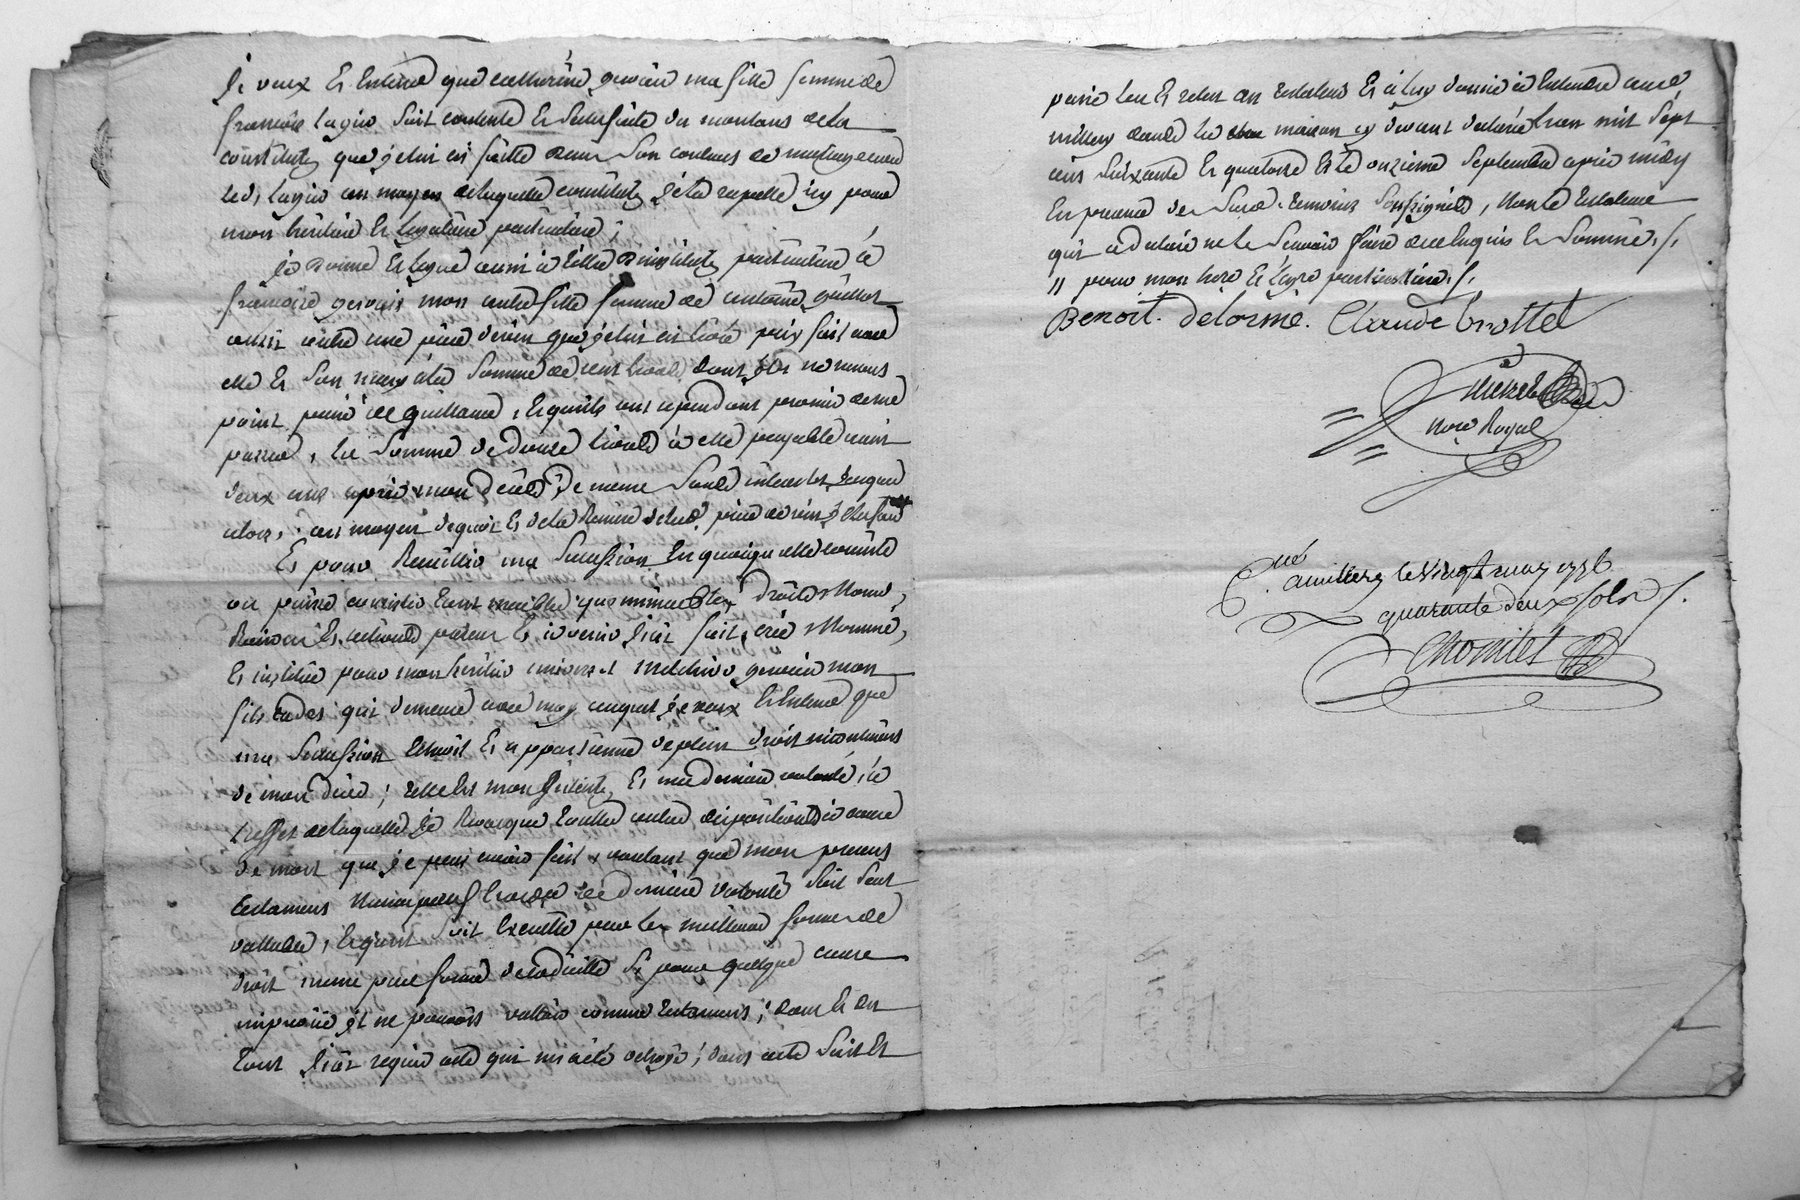 Je veux Et Entend que catherine gervais ma fille femme de
françois lagier soit contente Et satisfaite du montant de la
constitution que je lui ai faitte dans son contract de mariage avec
led. lagier au moyen de laquelle constitution je la rapelle icy pour
mon héritière Et légataire particulière ;
je donne Et legue aussi à titre d'institution particulière à
françoise gervais mon autre fille femme de antoine
aussi outre une pièce de vin que je lui ai livré prix fait avec
elle Et son mary à la somme de cent livres dont ils ne m'ont
point passé de quittance, Et qu'ils ont cependant promis de me
passer, la somme de douze livres à elle payable
deux ans après mon décès, de meme sans interets jusqu'
alors, au moyen de quoi Et de la Remise de lad. pièce de vin
Et pour Recueillir ma succession En quoi qu'elle consiste
ou puisse consister tant meubles que immeubles, droits, Noms,
Raisons Et actions présens Et avenir j'ai fait, créé, Nommé,
Et institué pour mon héritier universel gervais mon
fils qui demeure avec moy auquel je veux Et Entend que
ma succession Echoit Et appartienne de plein droit incontinent
de mon décès ; telle Est mon Intention Et ma dernière volonté, à
l'effet de laquelle je Revoque toutes autres dispositions à cause
de mort que je peus avoir fait, voulant que mon présent
testament Nuncupatif Et ordre de dernière volonté soit seul
vallable, Et qu'il soit Executé par les meilleures formes de
droit meme par forme de codicille si pour quelque cause
imprévüe il ne pouvoit valloir comme testament ; dont Et du
tout j'ai requis acte qui m'a été octroyé ; dont acte fait Et
passé leu Et releu au testateur Et à luy donné à Entendre aud.
millery dans la maison cy devant declarée L'an mil sept
cens soixante Et quatorze Et le onzieme septembre après midy
En presence des sus d. temoins soussignés, Non le testateur
qui a declaré ne le sçavoir faire de ce Enquis Et sommé ./.
" pour mon hoirs Et legre particulière ./.
Benoit. Delorme. Claude brottet
Nore Royal
Cllé a millery le vingt may 1776
quarante deux sols ./.